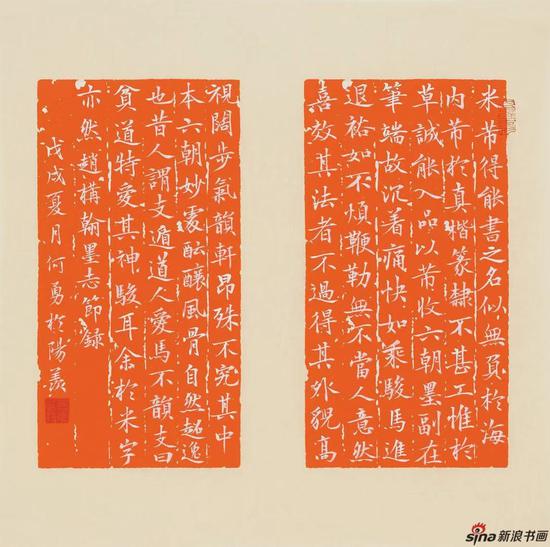 米芾得能書之名似無負於海
内芾於真楷篆隸不甚工惟於
草誠能入品以芾收六朝墨副在
筆端故沉着痛快如乘駿馬進
退裕如不煩鞭勒無不當人意然
喜效其法者不過得其外貌高
視闊步氣韻軒昂殊不究其中
本六朝妙處醖釀風骨自然超逸
也昔人謂支遁道人愛馬不韻支曰
貧道特愛其神駿耳余於米字
亦然趙構翰墨志節録
戊戌夏月何勇於陽羨
sina新浪书画